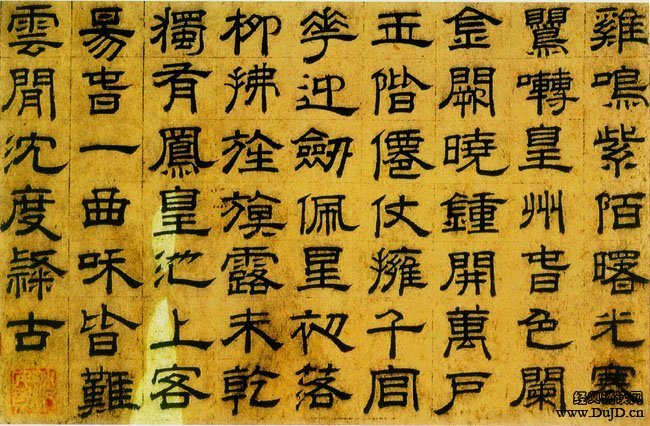 雞鳴紫陌曙光寒
鸎囀皇州旾色闌
金闕曉鍾開萬戶
玉階僊仗擁千官
華迎劒佩星初落
柳拂旌旗露未乾
獨有鳳皇池上客
昜旾一曲和皆難
雲閒沈度隸古
www.DujD.cn